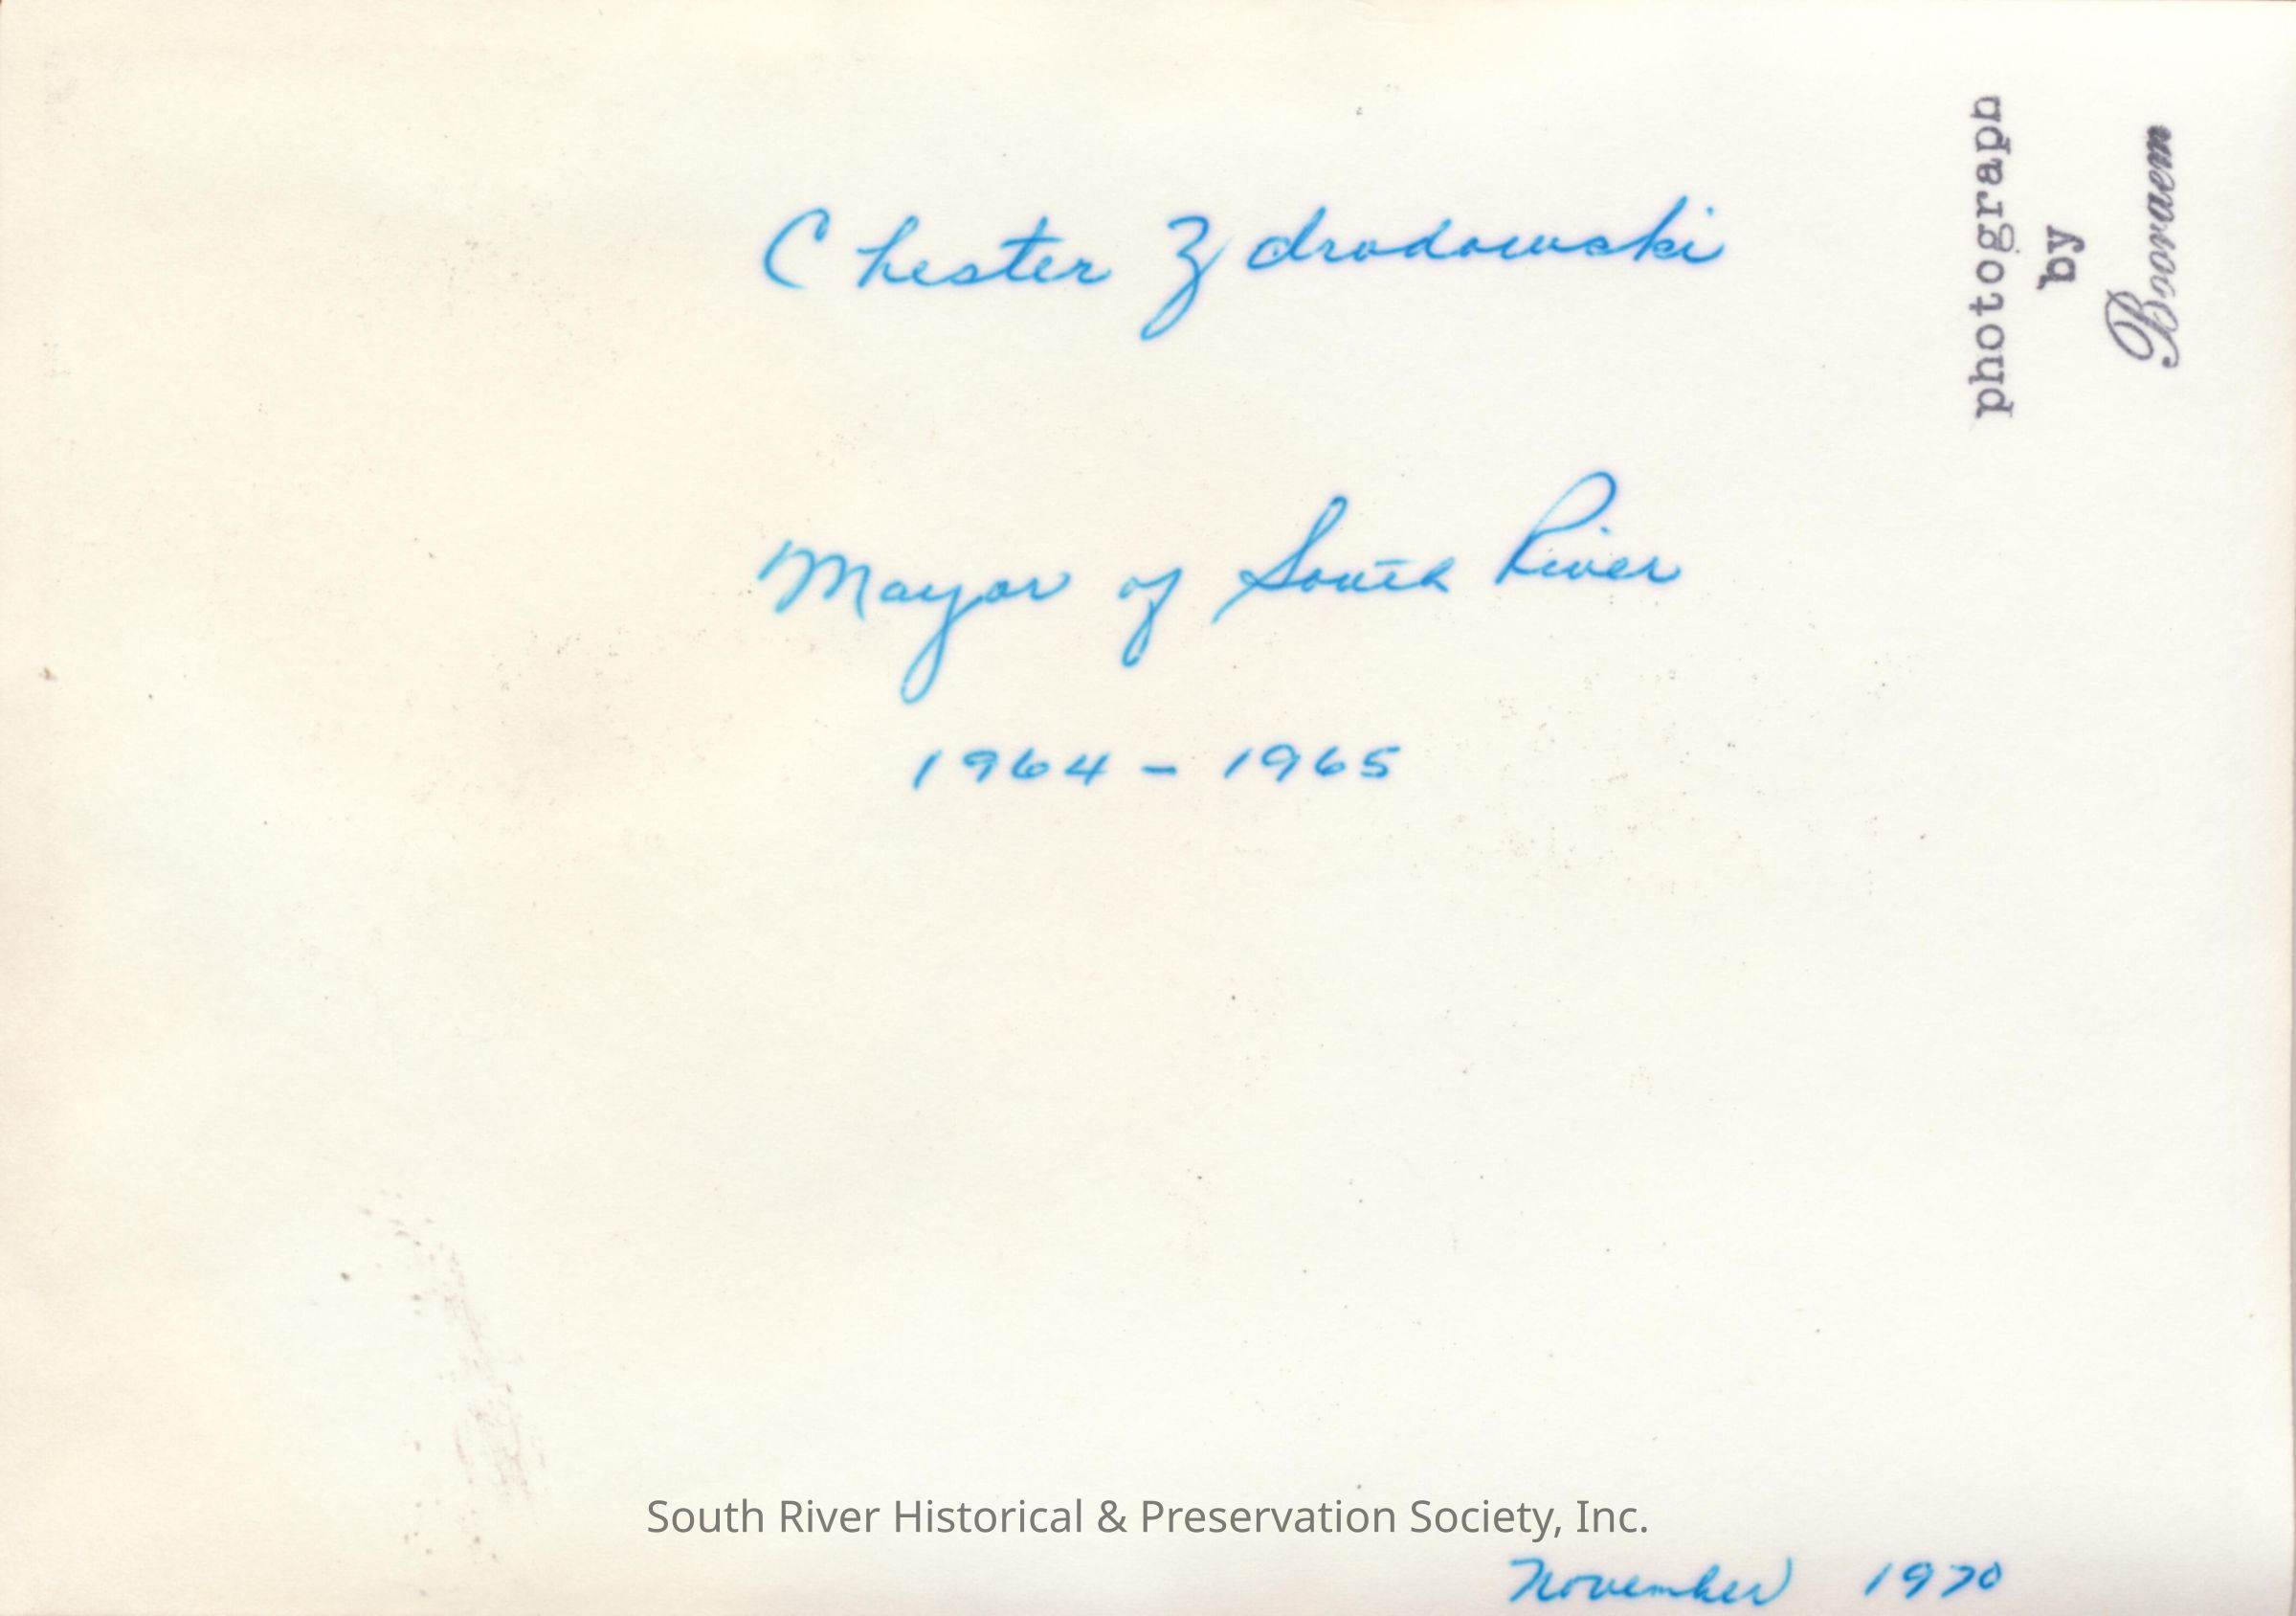 Chester Zdrodowski
Mayor of South River
1964 - 1965
photograph
by
Booraem
South River Historical & Preservation Society, Inc.
November 1970